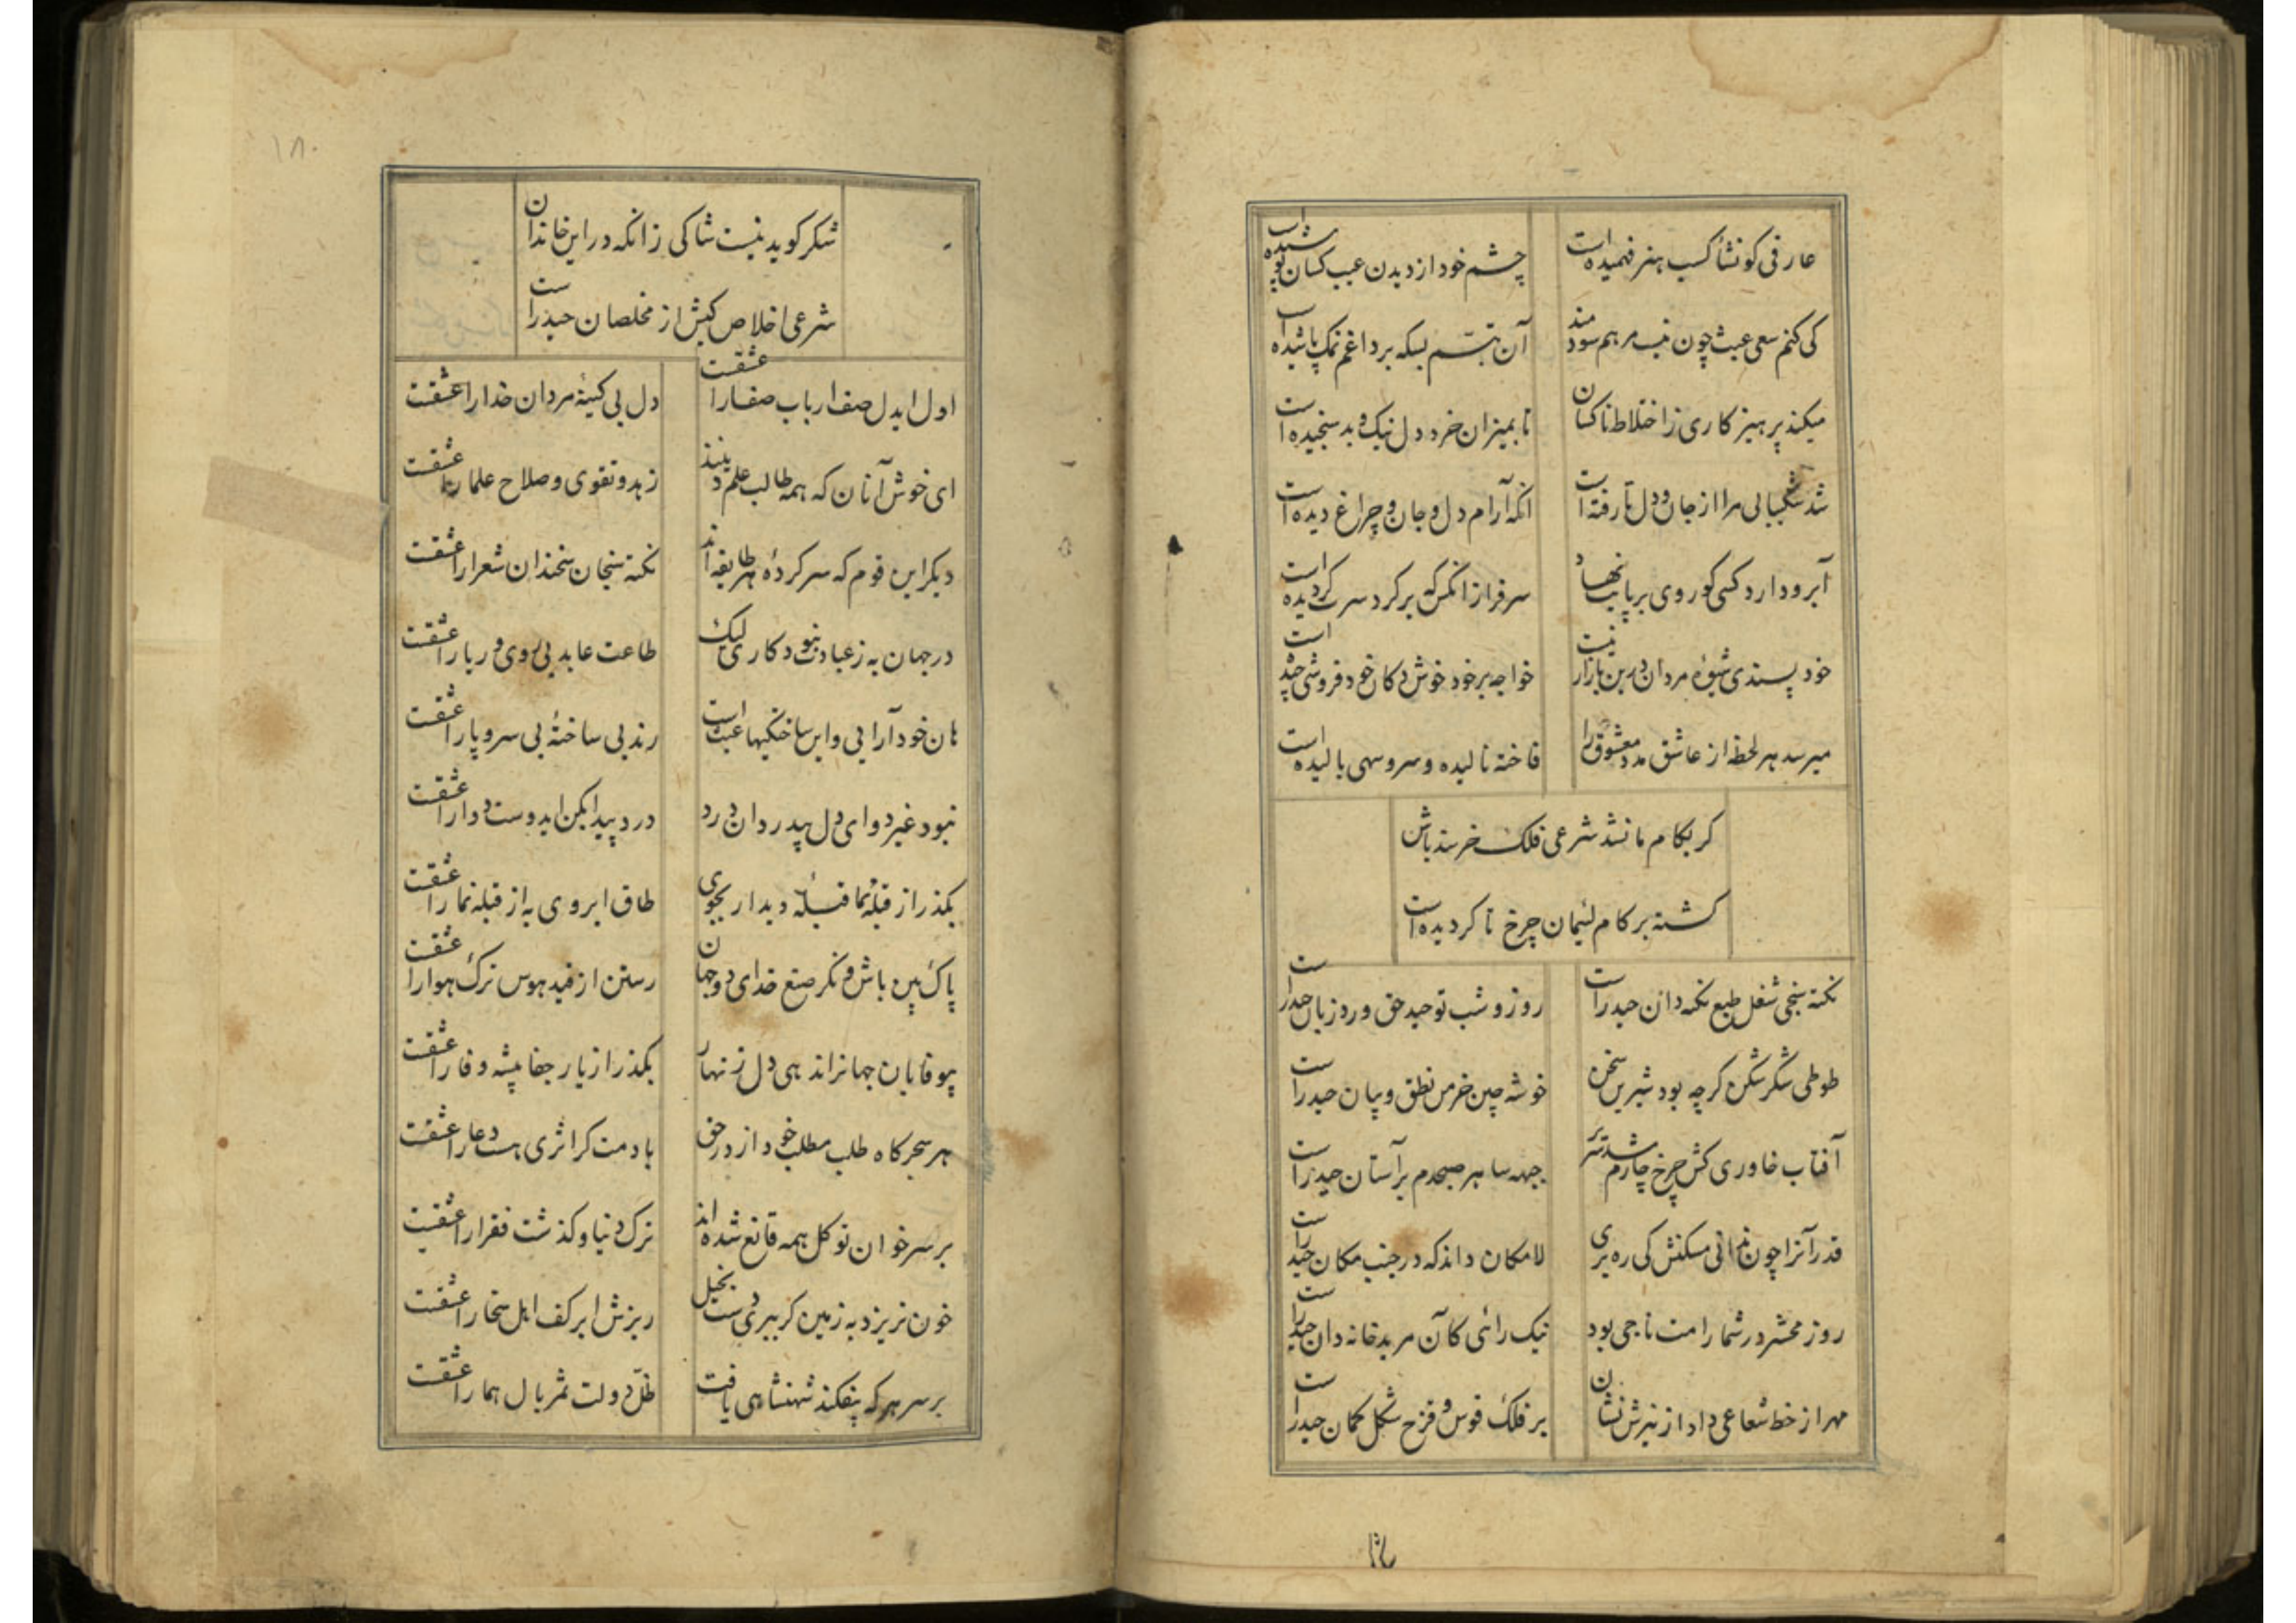 عارفی کو نشأ کسب هنر فهمیده است
چشم خود از دیدن عیب کسان پوشیده است
کی کنم سعی عبث چون نیست مرهم سودمند
آن تبسم بسکه بر داغم نمک پاشیده است
میکند پرهیزکاری ز اختلاط ناکسان
تا بمیزان خرد دل نیک و بد سنجیده است
شد شکیبایی مرا از جان و دل تا رفته است
آنکه آرام دل و جان و چراغ دیده است
آبرو دارد کسی کو روی بر پایت نهاد
سرفراز آنکس که بر کرد سرت کردیده است
خودپسندی شیوۀ مردان درین بازار نیست
خواجه بر خود خوش دکان خودفروشی چیده است
میرسد هر لحظه از عاشق مدد معشوق را
فاخته نالیده و سرو سهی بالیده است
کر بکام ما نشد شرعی فلک خرسند باش
کشته بر کام لئیمان چرخ تا کردیده است
نکته سنجی شغل طبع نکته دان حیدر است
روز و شب توحید حق ورد زبان حیدر است
طوطی شکرشکن کرچه بود شیرین سخن
خوشه چین خرمن نطق و بیان حیدر است
آفتاب خاوری کش چرخ چارم شد سریر
جبهه سا هر صبحدم بر آستان حیدر است
قدر آنرا چون ندانی مسکنش کی ره بری
لامکان داند که در جنب مکان حیدر است
روز محشر در شمار امت ناجی بود
نیک رائی کآن مرید خاندان حیدر است
مهر از خط شعاعی داد از تیرش نشان
بر فلک قوس و قزح شکل کمان حیدر است
شکر کوید نیست شاکی زانکه در این خاندان
شرعی اخلاص کیش از مخلصان حیدر است
اول ایدل صف ارباب صفا را عشقست
دل بی کینۀ مردان خدا را عشقست
ای خوش آنان که همه طالب علم دینند
زهد و تقوی و صلاح علما را عشقست
دیکر این قوم که سرکردۀ هر طایفه اند
نکته سنجان سخندان شعرا را عشقست
در جهان به ز عبادت نبود کاری لیک
طاعت عابد بی روی و ریا را عشقست
هان خودآرایی و این ساختکیها عبث است
رند بی ساختۀ بی سر و پا را عشقست
نبود غیر دوای دل بیدردان درد
درد پیدا بکن ایدوست دوا را عشقست
بکذر از قبله نما قبلۀ دیدار بجوی
طاق ابروی به از قبله نما را عشقست
پاک بین باش و نکر صنع خدای دو جهان
رستن از قید هوس ترک هوا را عشقست
بیوفایان جهانراند هی دل زنهار
بکذر از یار جفا پیشه وفا را عشقست
هر سحرکاه طلب مطلب خود از در حق
با دمت کر اثری هست دعا را عشقست
بر سر خوان توکل همه قانع شده اند
ترک دنیا و کذشت فقرا را عشقست
خون نریزد به زمین کر ببری دست بخیل
ریزش ابر کف اهل سخا را عشقست
بر سر هر که بیفکند شهنشاهی یافت
ظل دولت ثمر بال هما را عشقست